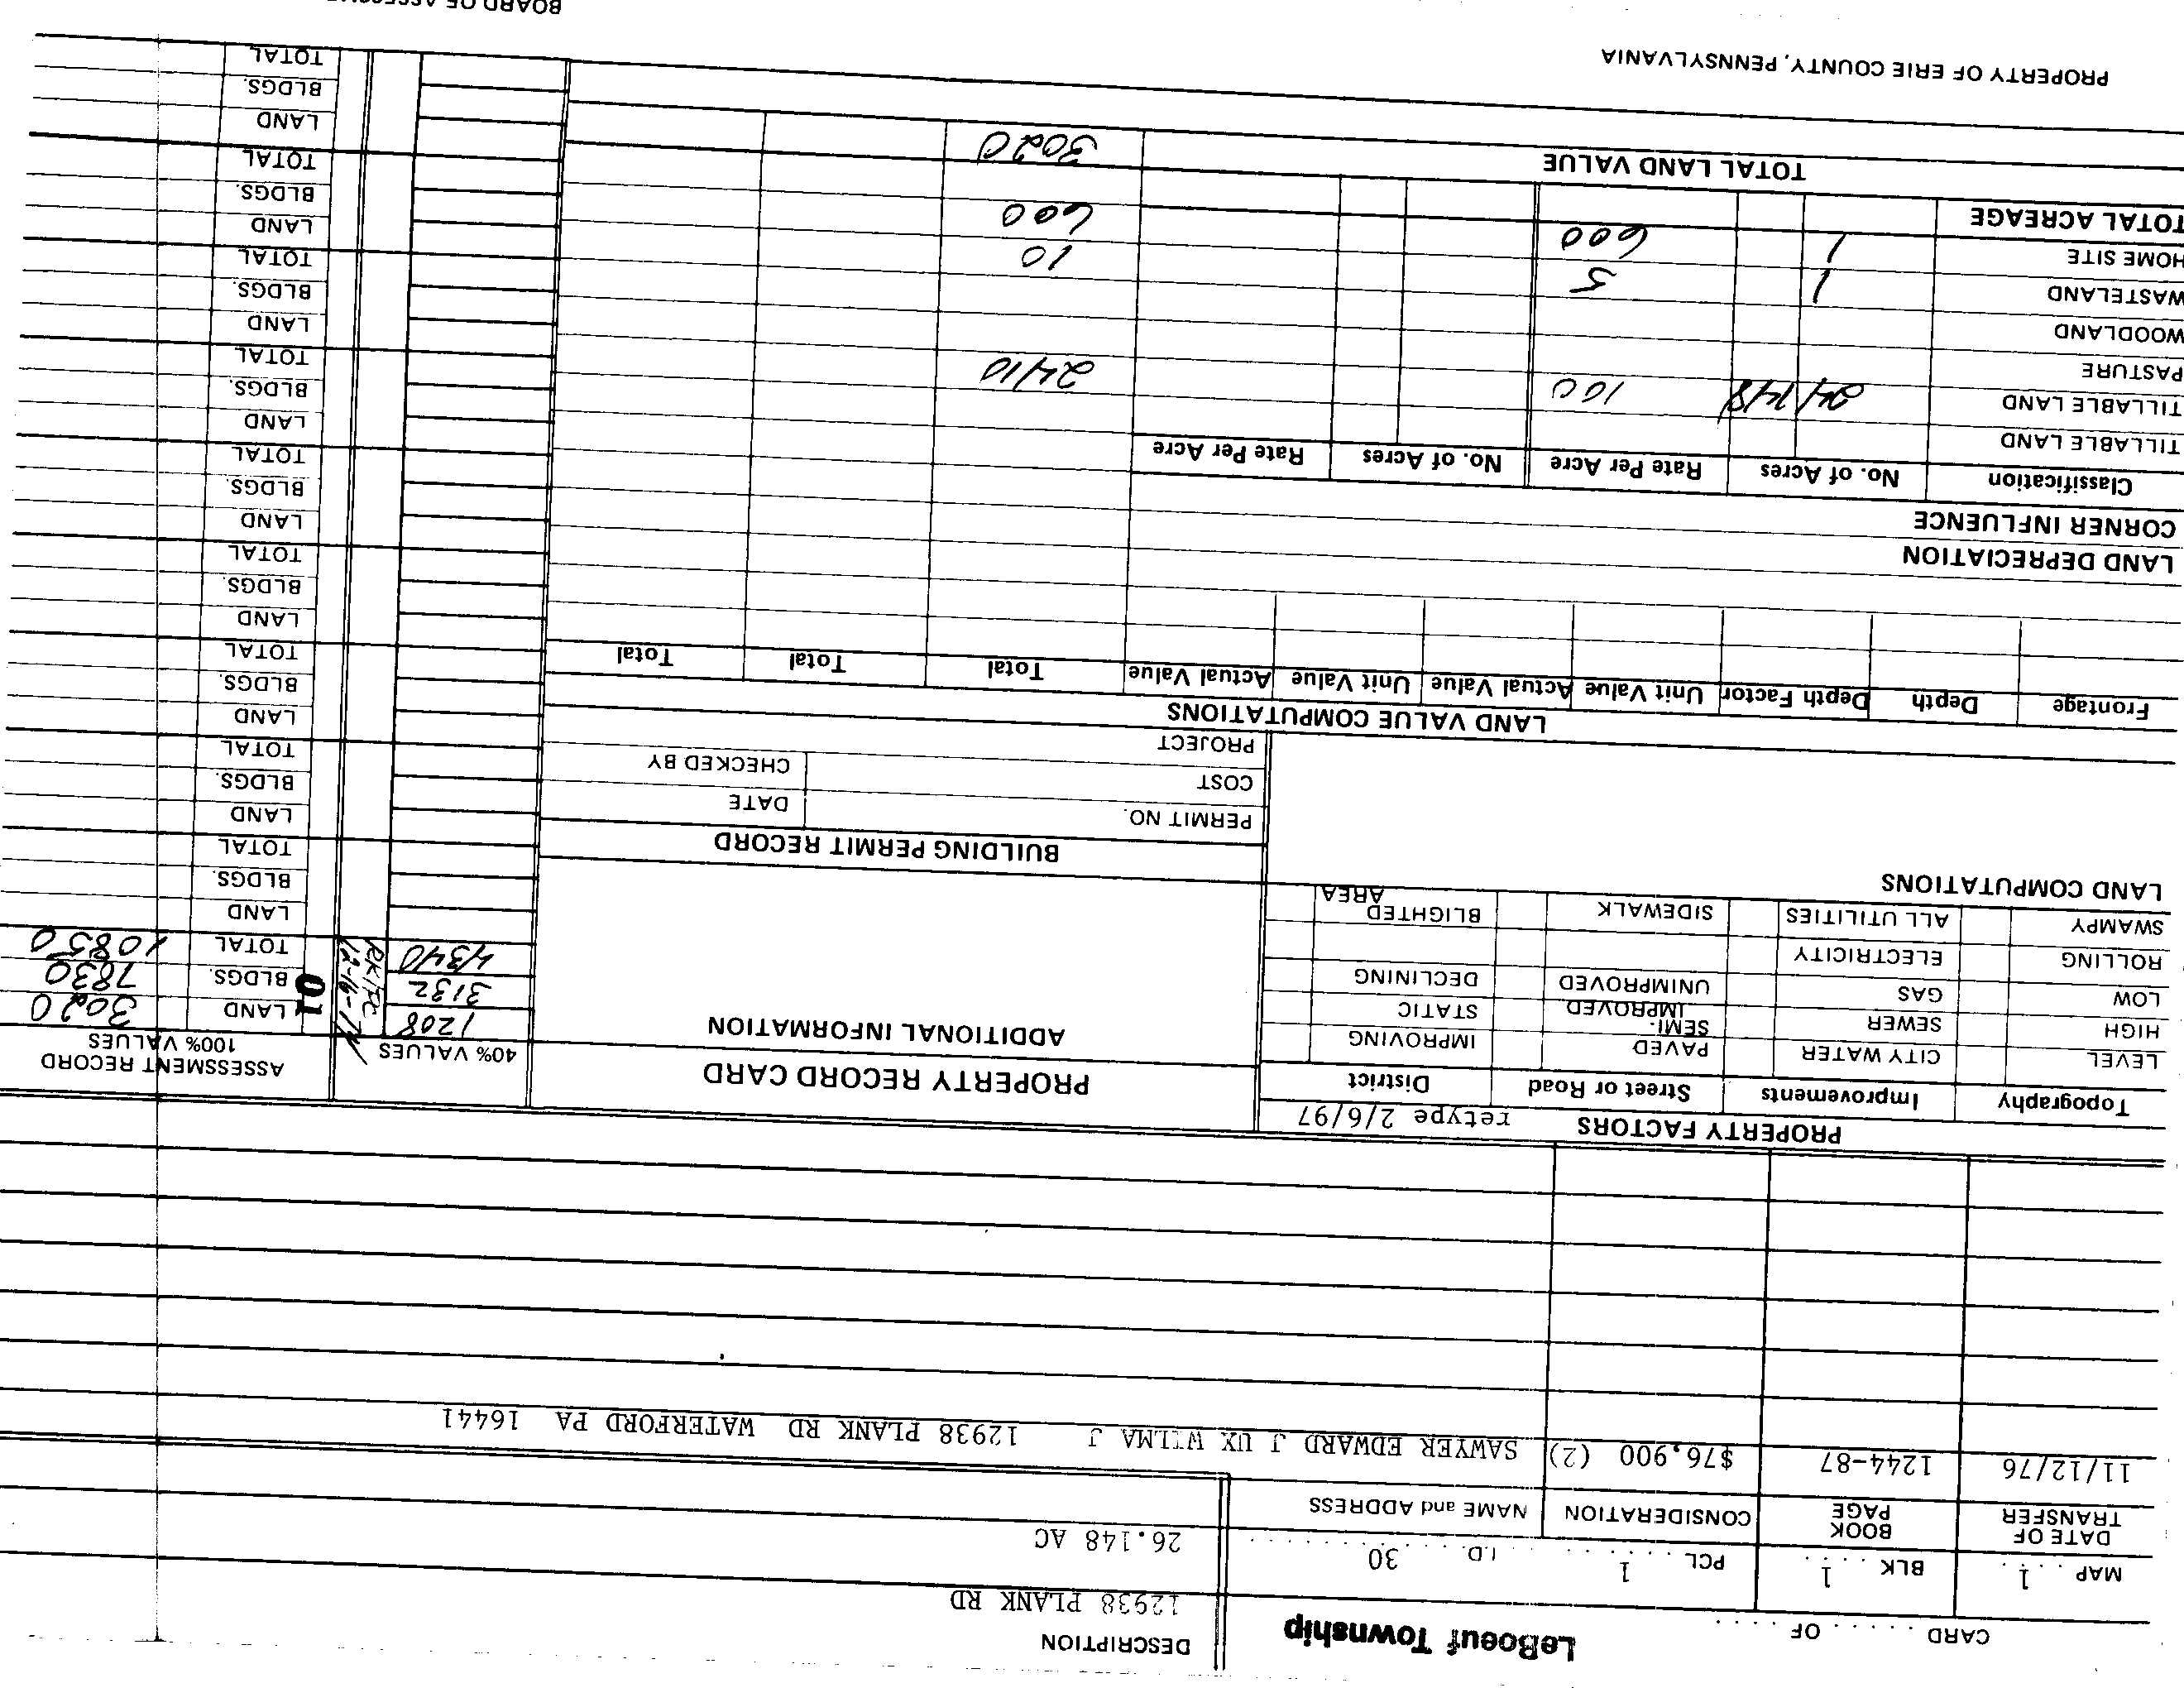 CARD . . . . . OF . . . . .
LeBoeuf Township
DESCRIPTION
12938 PLANK RD
MAP . . 1 . . BLK . . . 1 . . PCL. . . . 1 . . . I.D. . . 30 . . . .
26.148 AC
DATE OF TRANSFER BOOK PAGE CONSIDERATION NAME and ADDRESS
11/12/76 1244-87 $76,900 (2) SAWYER EDWARD J UX WILMA J 12938 PLANK RD WATERFORD PA 16441
PROPERTY FACTORS retype 2/6/97
Topography Improvements Street or Road District
LEVEL CITY WATER PAVED IMPROVING
HIGH SEWER SEMI-IMPROVED STATIC
LOW GAS UNIMPROVED DECLINING
ROLLING ELECTRICITY
SWAMPY ALL UTILITIES SIDEWALK BLIGHTED AREA
LAND COMPUTATIONS
PROPERTY RECORD CARD
ADDITIONAL INFORMATION
BUILDING PERMIT RECORD
PERMIT NO. DATE
COST CHECKED BY
PROJECT
40% VALUES
1208
3132
4340
ASSESSMENT RECORD
100% VALUES
01
LAND 3020
BLDGS. 7830
TOTAL 10850
LAND
BLDGS.
TOTAL
LAND
BLDGS.
TOTAL
LAND
BLDGS.
TOTAL
LAND
BLDGS.
TOTAL
LAND
BLDGS.
TOTAL
LAND
BLDGS.
TOTAL
LAND
BLDGS.
TOTAL
LAND
BLDGS.
TOTAL
LAND
BLDGS.
TOTAL
LAND VALUE COMPUTATIONS
Frontage Depth Depth Factor Unit Value Actual Value Unit Value Actual Value Total Total Total
LAND DEPRECIATION
CORNER INFLUENCE
Classification No. of Acres Rate Per Acre No. of Acres Rate Per Acre
TILLABLE LAND
TILLABLE LAND 24 148 100 2410
PASTURE
WOODLAND
WASTELAND 1 5 10
HOME SITE 1 600 600
TOTAL ACREAGE
TOTAL LAND VALUE 3020
PROPERTY OF ERIE COUNTY, PENNSYLVANIA
BOARD OF